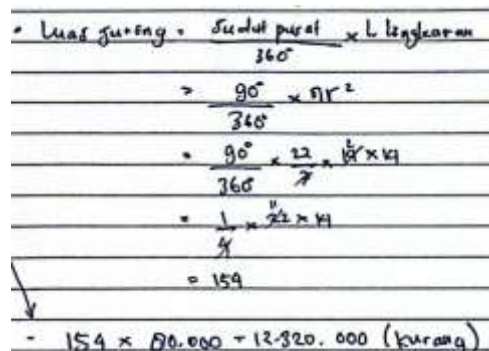 • Luas Jureng = Sudut pusat / 360° × L lingkaran
= 90° / 360° × πr²
= 90° / 360° × 22 / 7 × 14 × 14
= 1 / 4 × 22 × 14
= 154
- 154 × 80.000 = 12.320.000 (kurang)